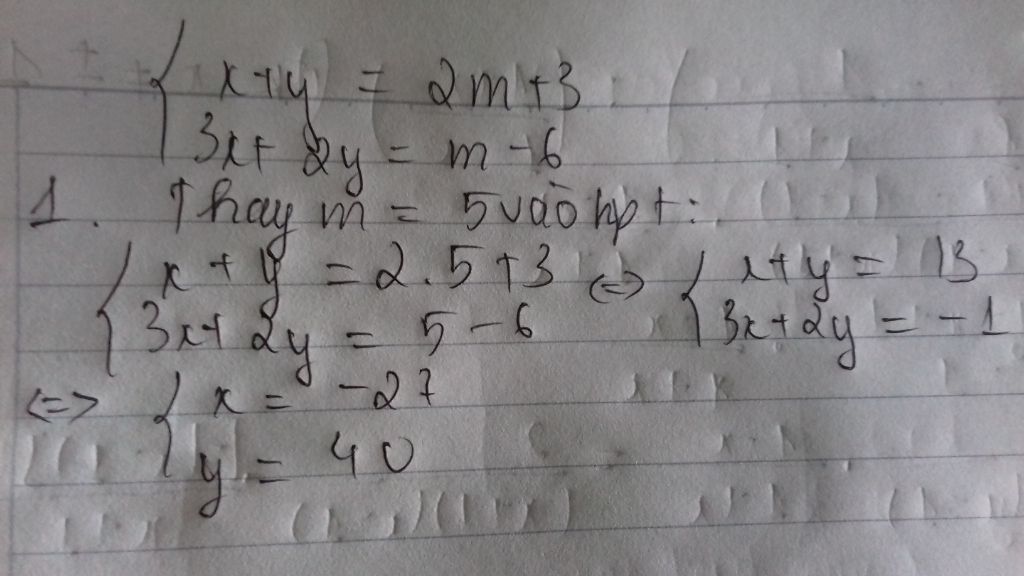 { x + y = 2m + 3
3x + 2y = m - 6
1. Thay m = 5 vào hpt:
{ x + y = 2.5 + 3 <=> { x + y = 13
3x + 2y = 5 - 6 3x + 2y = -1
<=> { x = -27
y = 40